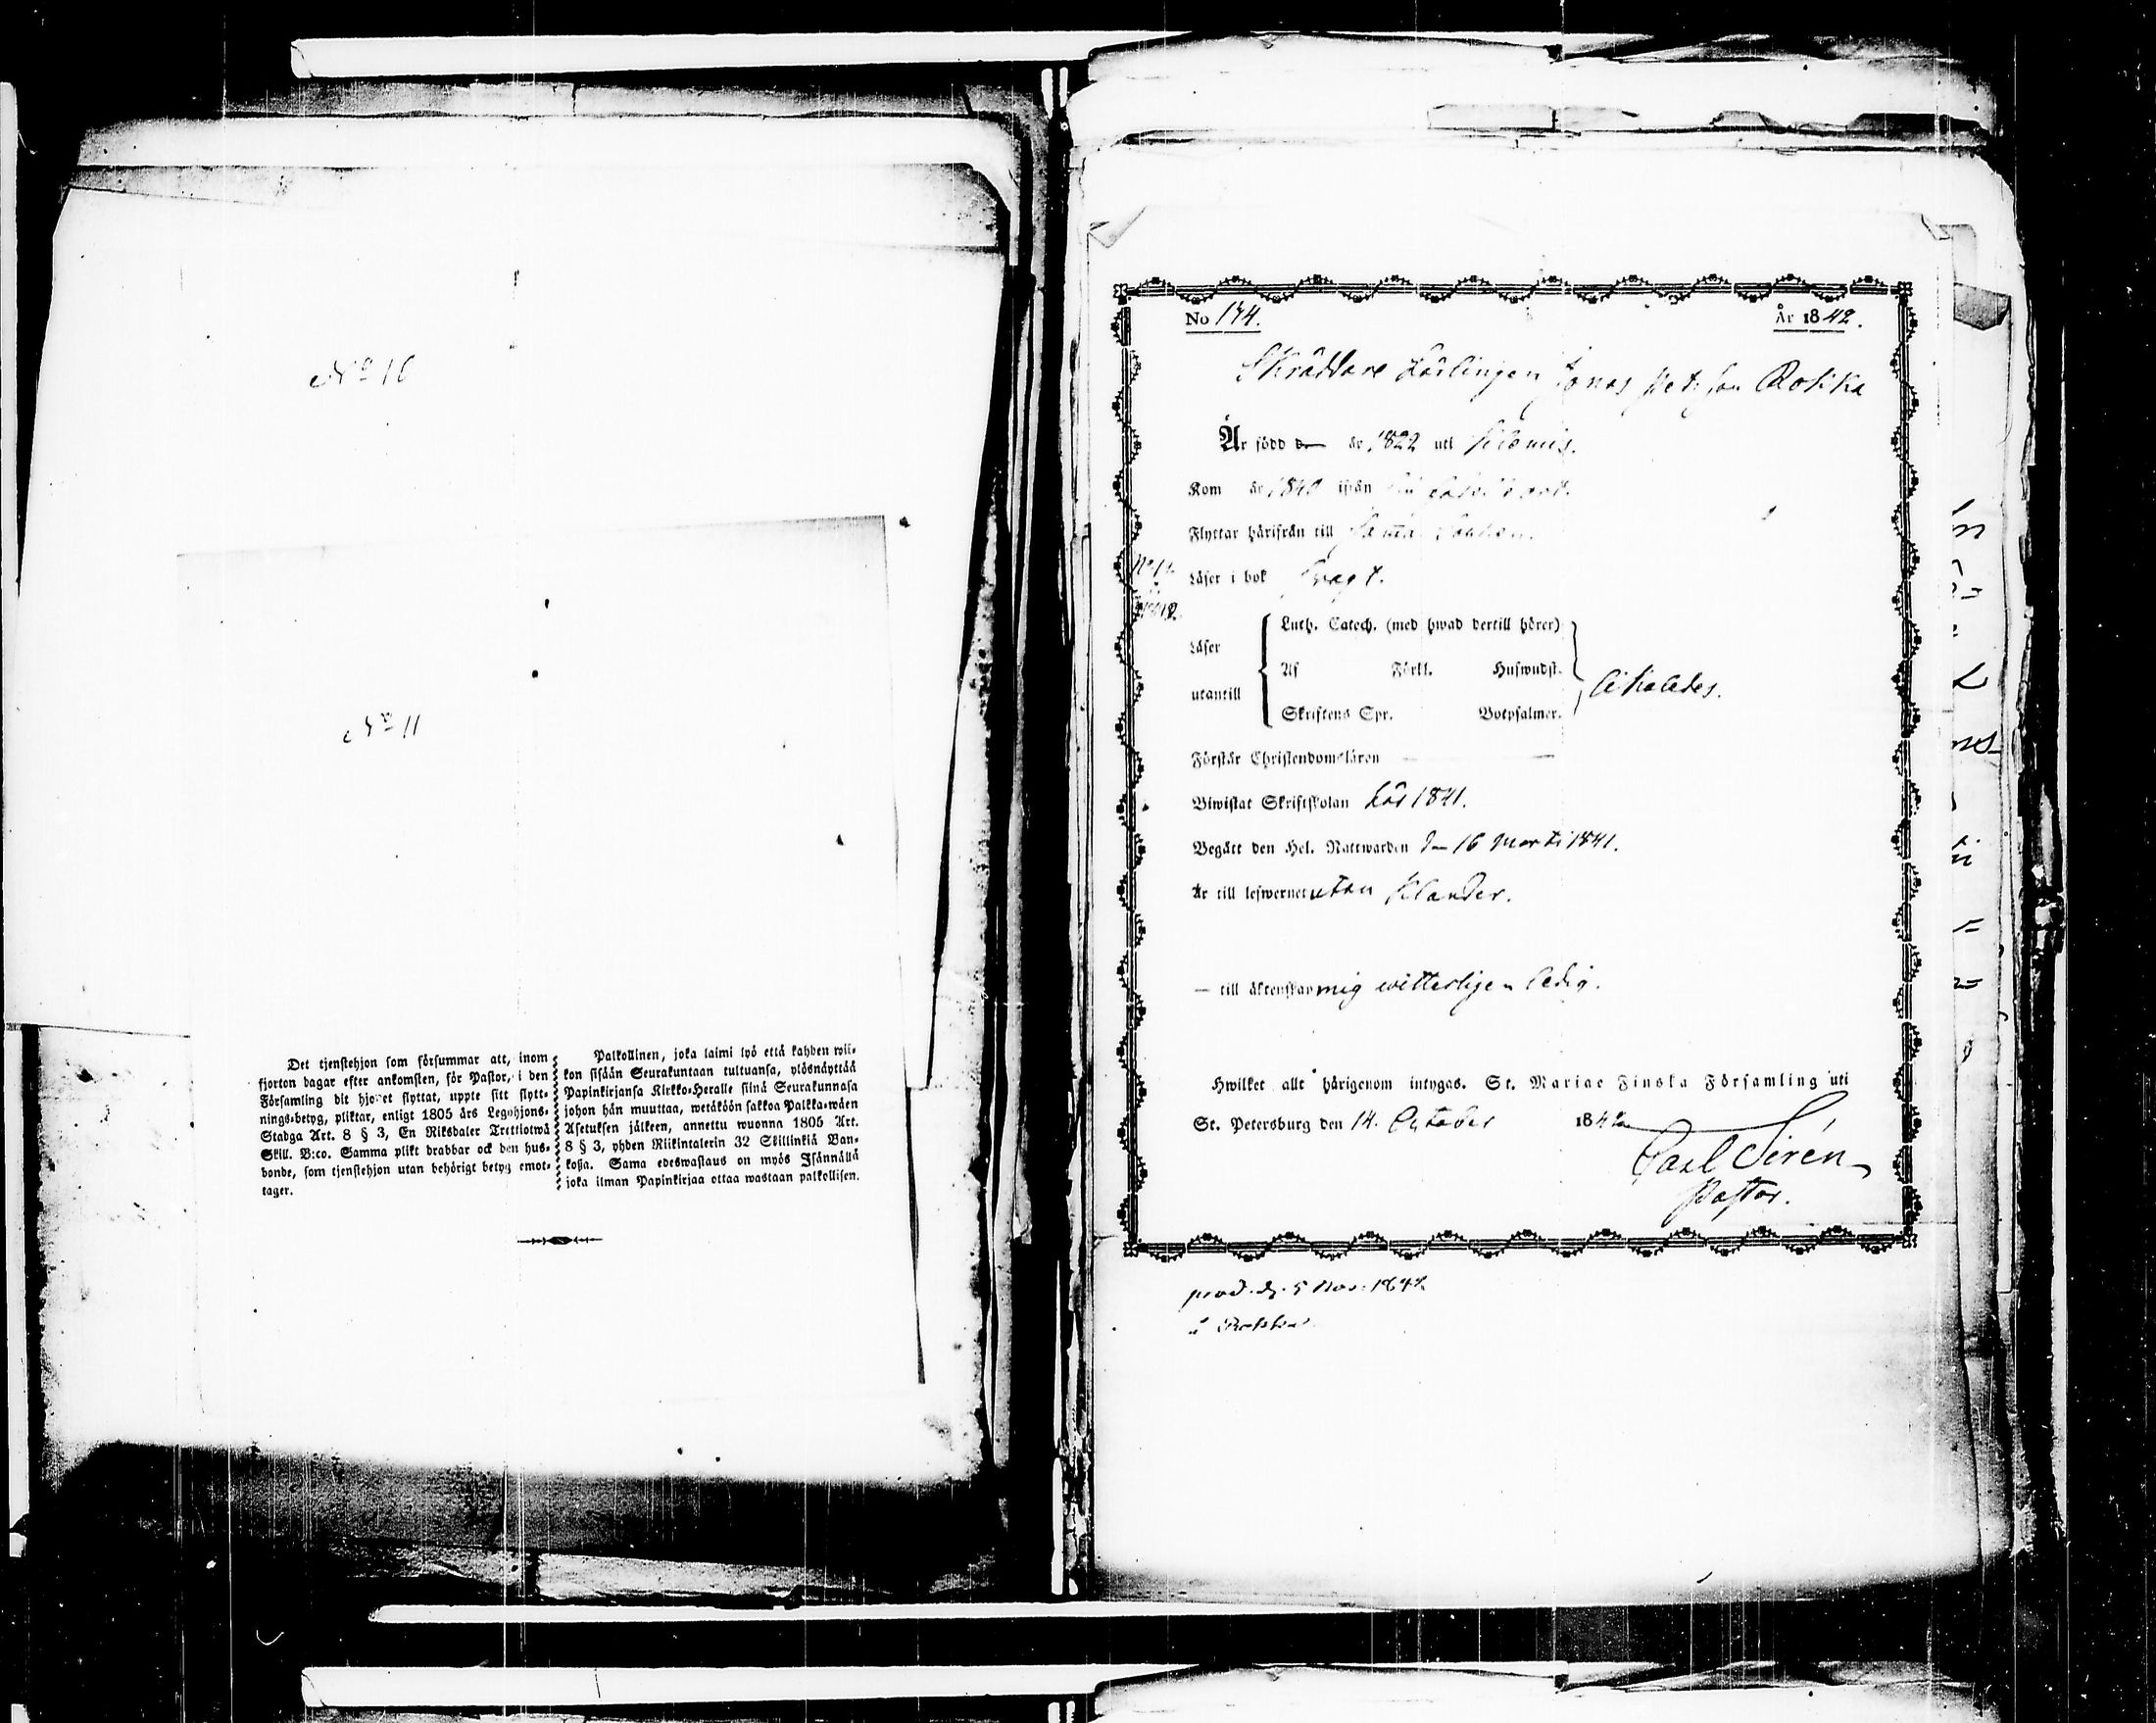 No 16
No 11
Det tjenstehjon som försummar att, inom
fjorton dagar efter ankomsten, för Pastor, i den
Församling dit hjonet flyttat, uppte sitt flytt-
nings-betyg, pliktar, enligt 1805 års Legohjons-
Stadga Art. 8 § 3, En Riksdaler Trettiotwå
Skill. B:co. Samma plikt drabbar ock den hus-
bonde, som tjenstehjon utan behörigt betyg emot-
tager.
Palkollinen, joka laimi lyö että kahden wii-
kon sisään Seurakuntaan tultuansa, ylösnäyttää
Papinkirjansa Kirkko-Heralle siinä Seurakunnasa
johon hän muuttaa, wetäköön sakkoa Palkka-wäen
Asetuksen jälkeen, annettu wuonna 1805 Art.
8 § 3, yhden Riikintalerin 32 Skillinkiä Ban-
koßa. Sama edeswastaus on myös Isännällä
joka ilman Papinkirjaa ottaa wastaan palkollisen.
No 174.
År 1842.
Skräddare Lärlingen Jonas Pet: son Rokka
Är född d— år 1822 uti
Kom år 1840 ifrån
Flyttar härifrån till
Läser i bok Svagt.
Läser
utantill
Luth. Catech. (med hwad dertill hörer)
Af Förkl. Huswudst.
Skriftens Spr. Botpsalmer.
likaledes.
Förstår Christendomsläran —
Biwistat Skriftskolan här 1841.
Begått den Hel. Nattwarden d— 16 Marti 1841.
Är till lefwernet utan klander.
— till äktenskap mig witterligen ledig.
Hwilket allt härigenom intygas. St. Mariae Finska Församling uti
St. Petersburg den 14. October 1842
Carl Sirén
Pastor.
prod. d. 5 Nov. 1842